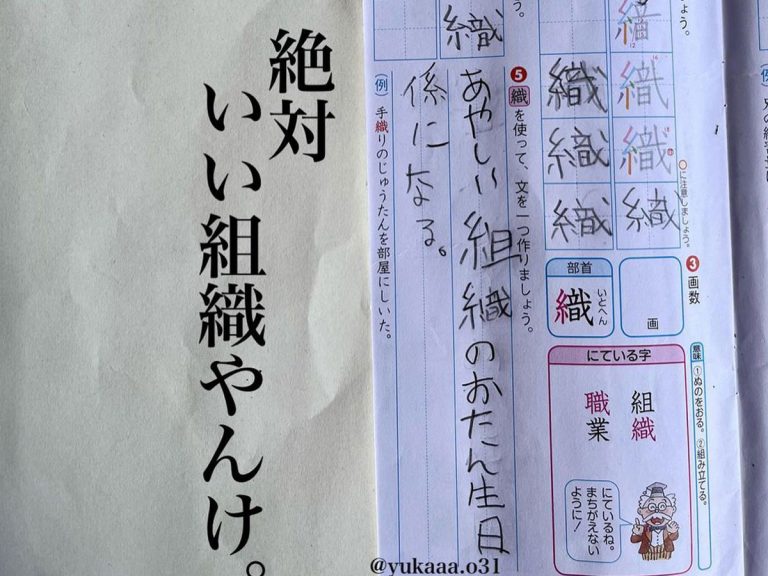 絶対
いい組織やんけ。
ょう。
織
織
織
織
○に注意しましょう。
織
織
織
③画数
画
部首
織
いとへん
意味 ①ぬのをおる。②組み立てる。
にている字
組織
職業
にているね。
まちがえない
ように！
う。
織
⑤織を使って、文を一つ作りましょう。
あやしい組織のおたん生日
係になる。
(例) 手織りのじゅうたんを部屋にしいた。
@yukaaa.o31